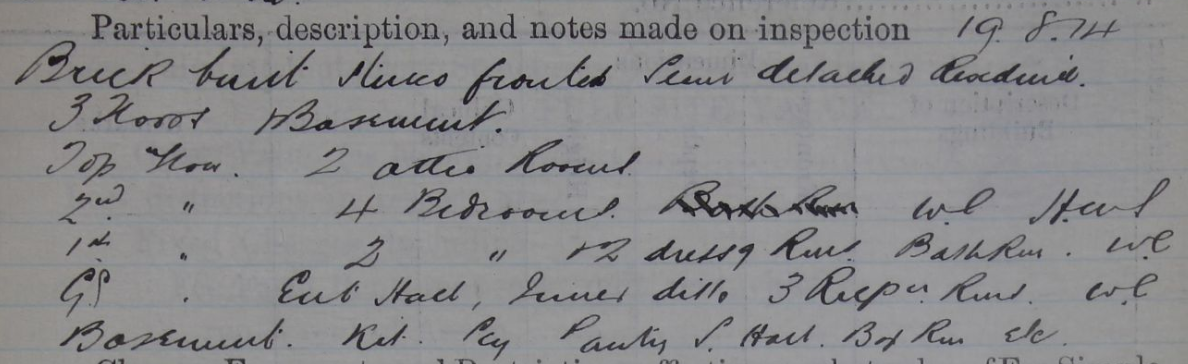 Particulars, description, and notes made on inspection 19.8.14
Brick built Stucco fronted Semi detached Residence.
3 Floors Basement.
Top Floor. 2 attic Rooms.
2nd " 4 Bedrooms. W C
1st " 2 " + 2 dressg Rms. Bath Rm. W C
G " Ent Hall, Inner ditto 3 Recepn Rms. W C
Basement. Kit. Scy Pantry S. Hall. Box Rm etc